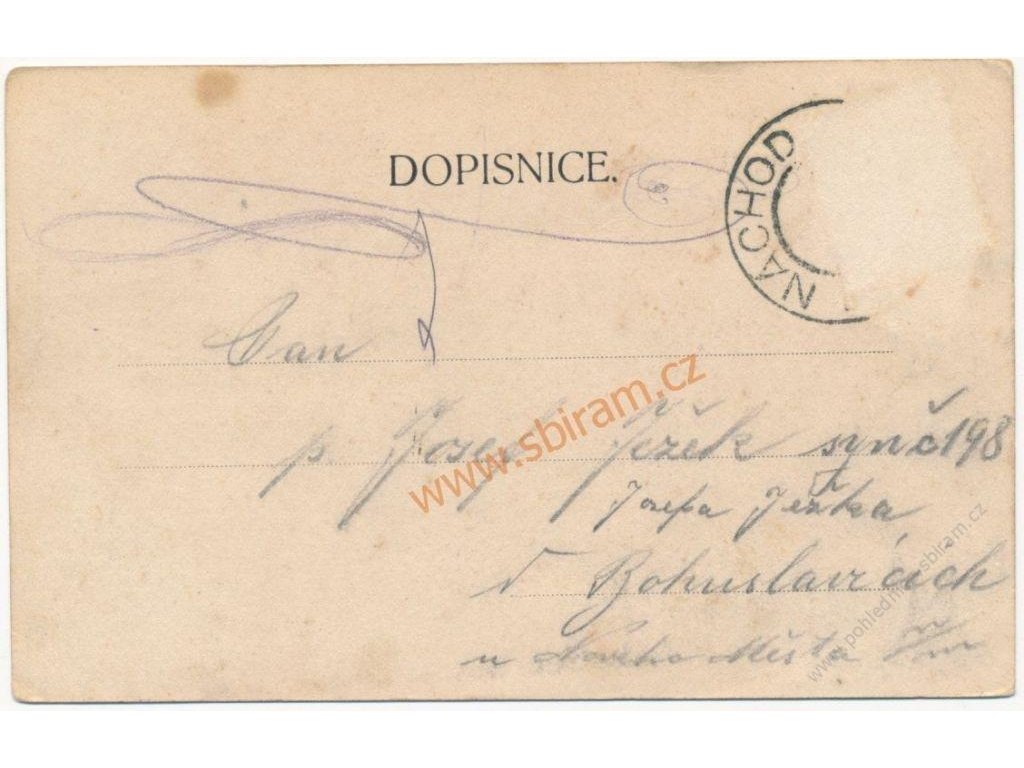 DOPISNICE.
NÁCHOD
Pan
p. Josef Ježek syn č 198
Josefa Ježka
v Bohuslavicích
u Nového Města
www.sbiram.cz
www.pohlednice-sbiram.cz